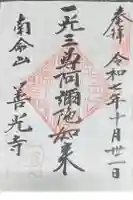 奉拝 令和七年十月廿一日
一光三尊阿彌陀如来
南命山 善光寺